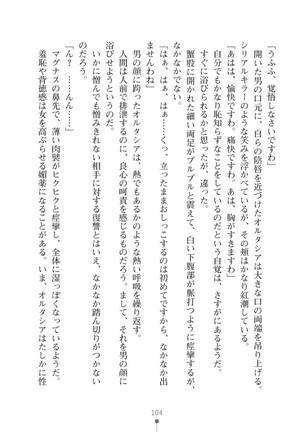 「うふふ、覚悟しなさいですわ」
開いた男の口元に、自らの陰唇を近づけたオルタシアは大きな口の両端を吊り上げる。
シリアルキラーのような笑みを浮かべているが、その頬はかなり紅潮している。
「あはは、愉快ですわ。痛快ですわ。あは、胸がすきますわ」
自分でもかなり恥知らずなことをしているのだという自覚は、さすがにあるようだ。
すぐに浴びせられるかと思ったが、違った。
蟹股に開かれた細い両足がプルプルと震えて、白い下腹部が脈打つように痙攣するが、
なかなかでない。
「はぁ、はぁ、はぁ……くっ、立ったままおしっこするのは初めてですから、なかなか出
ませんわね」
男の顔に跨ったオルタシアは、熱でもあるかのような熱い呼吸を繰り返す。
人間は人前で排泄するのに、良心の呵責を感じるものだろう。まして、それを男の顔に
浴びせようというのだ。
いかに憎んでも憎みきれない相手に対する復讐とはいえ、なかなか踏ん切りがつかない
のだろう。
「ん？　……んん……」
マグナスの鼻先で、薄い肉襞がヒクヒクと痙攣し、全体に湿っぽくなっているようだ。
羞恥や背徳感は女を高ぶらせる媚薬になることがある。いま、オルタシアはたしかに性
104